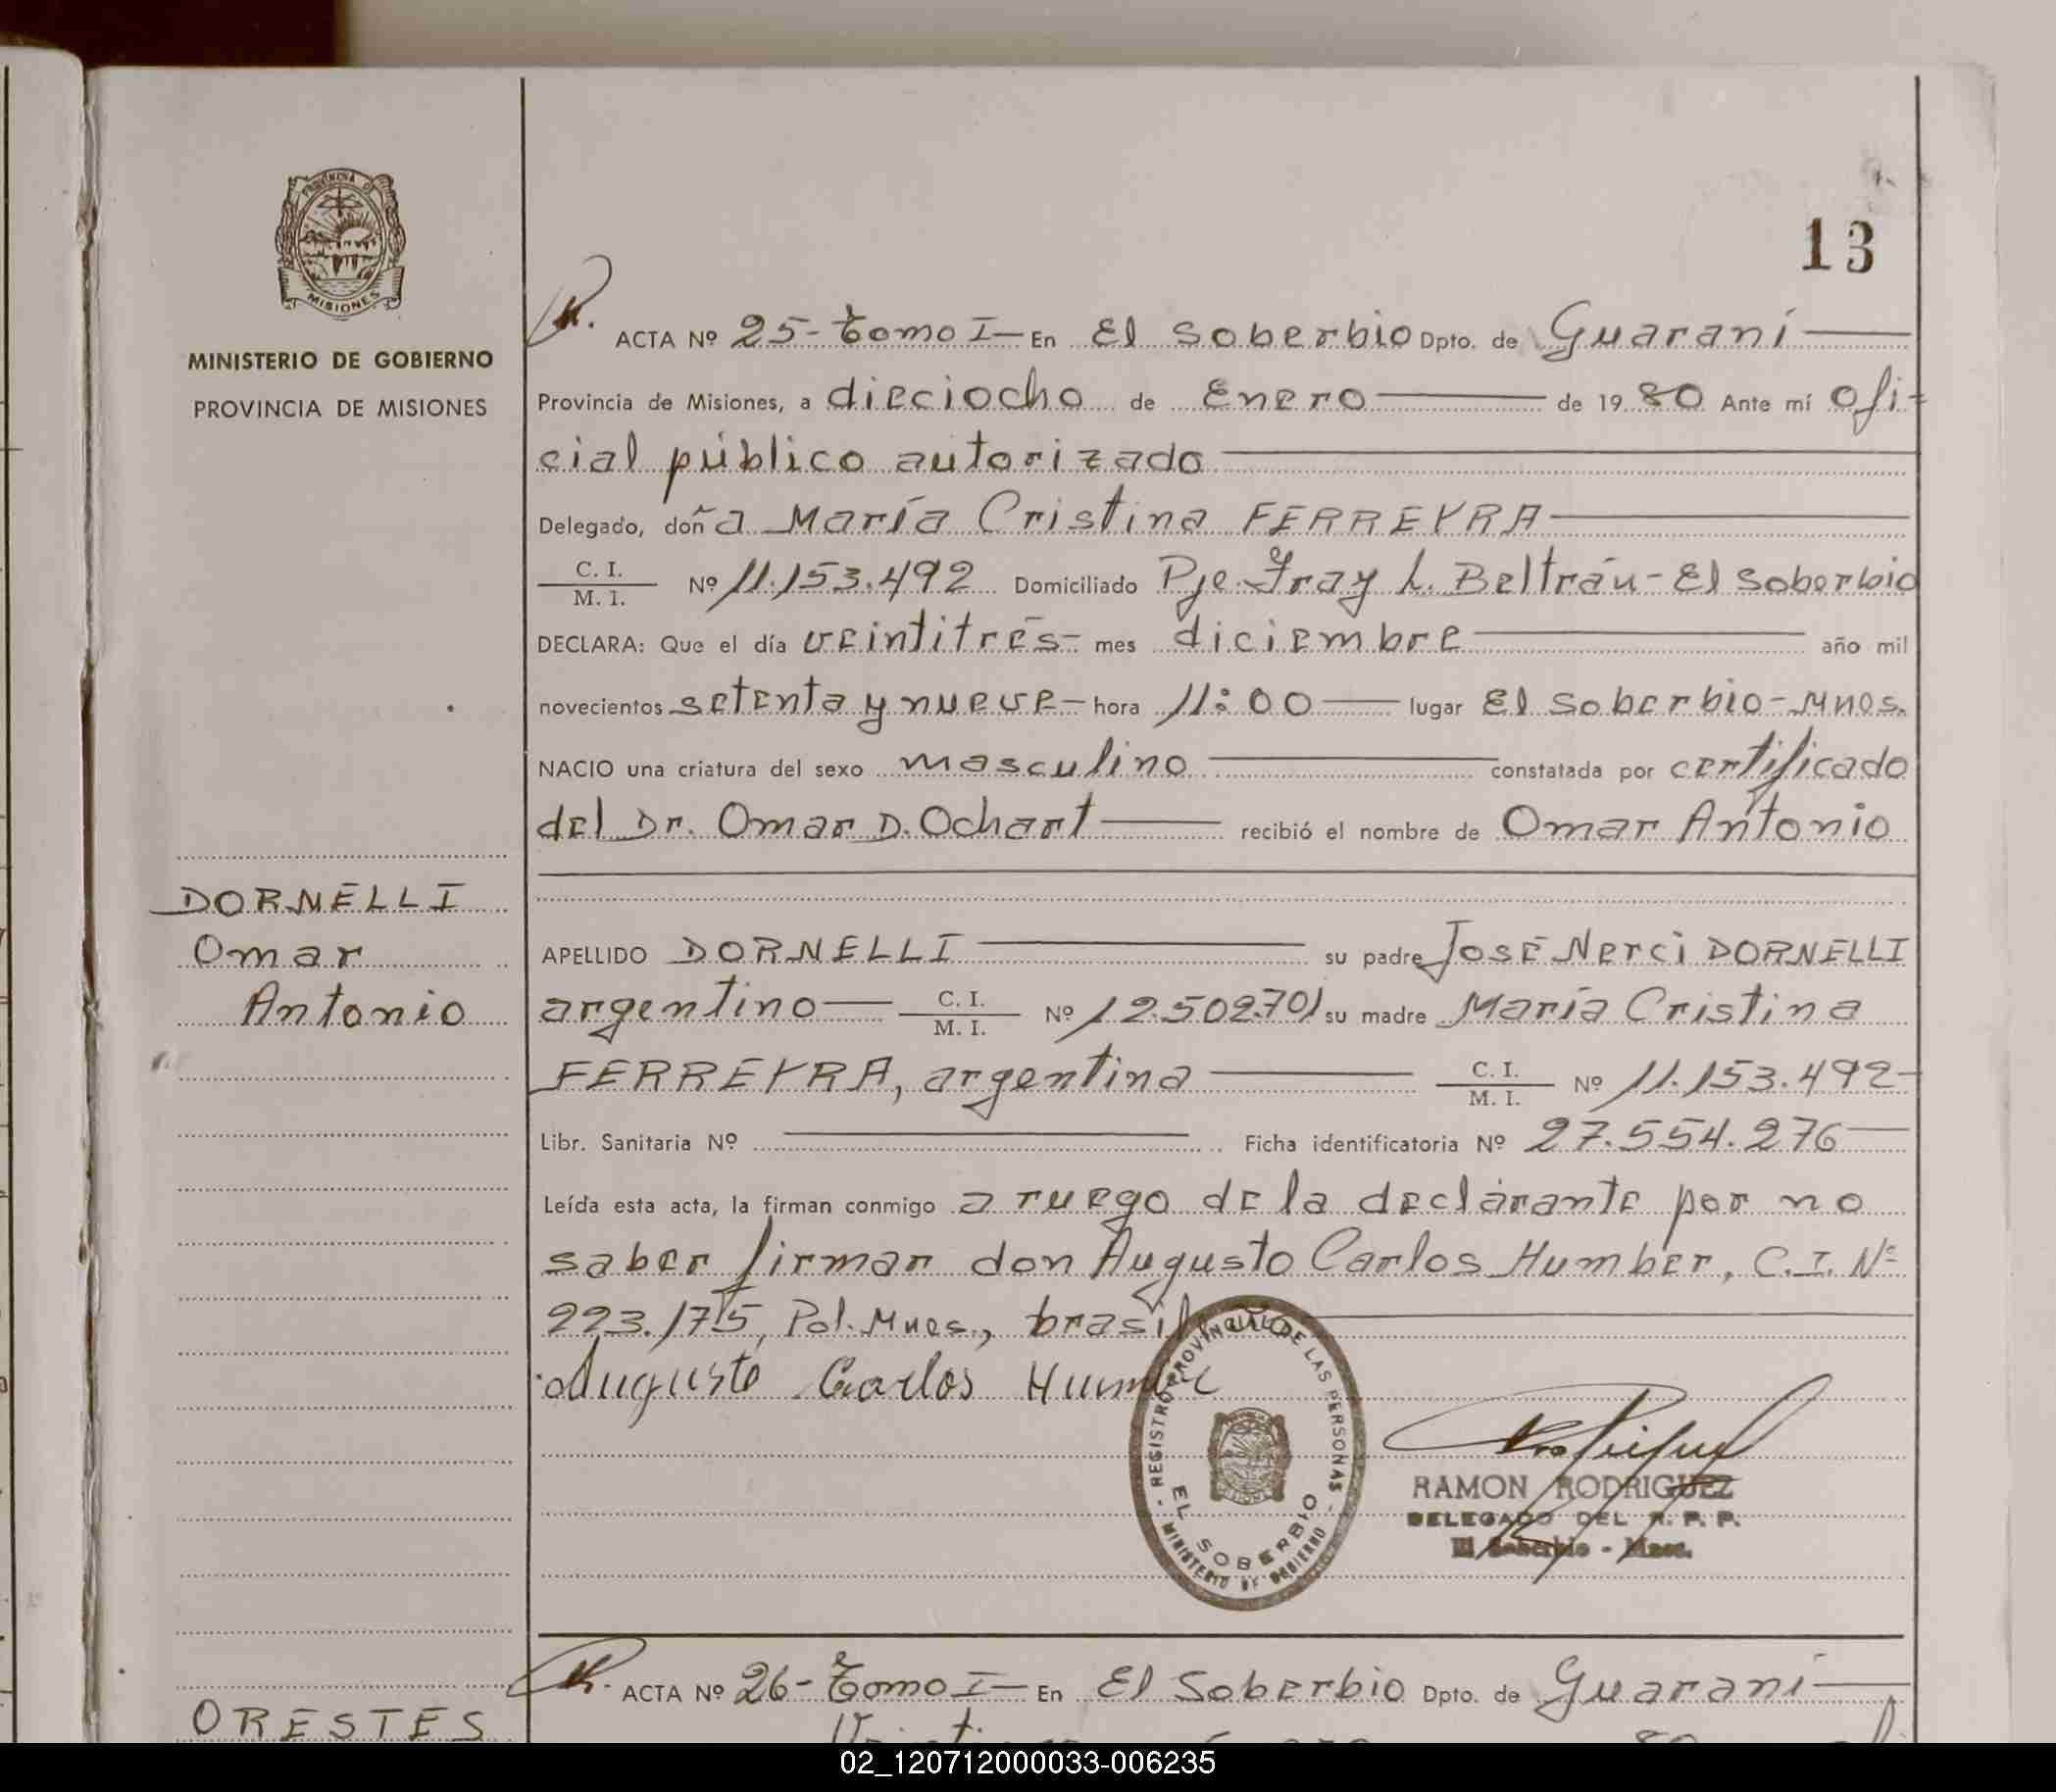 13
PROVINCIA DE
MISIONES
MINISTERIO DE GOBIERNO
PROVINCIA DE MISIONES
DORNELLI
Omar
Antonio
ACTA Nº 25- Tomo I- En El Soberbio Dpto. de Guaraní
Provincia de Misiones, a dieciocho de Enero de 1980 Ante mí Ofi-
cial público autorizado
Delegado, doña María Cristina FERREYRA
C. I. / M. I. Nº 11.153.492 Domiciliado Pje. Fray L. Beltrán - El Soberbio
DECLARA: Que el día veintitrés- mes diciembre año mil
novecientos setenta y nueve- hora 11:00 lugar El Soberbio-Mnes.
NACIO una criatura del sexo masculino constatada por certificado
del Dr. Omar D. Ochart recibió el nombre de Omar Antonio
APELLIDO DORNELLI su padre José Nerci DORNELLI
argentino C. I. / M. I. Nº 12.502.701 su madre María Cristina
FERREYRA, argentina C. I. / M. I. Nº 11.153.492
Libr. Sanitaria Nº Ficha identificatoria Nº 27.554.276
Leída esta acta, la firman conmigo a ruego de la declarante por no
saber firmar don Augusto Carlos Humber, C.I. Nº
223.175, Pol. Mnes., brasileño
Augusto Carlos Humbe
REGISTRO PROVINCIAL DE LAS PERSONAS
EL SOBERBIO
MINISTERIO DE GOBIERNO
RAMON RODRIGUEZ
DELEGADO DEL R. P. P.
El Soberbio - Mnes.
ORESTES
ACTA Nº 26- Tomo I- En El Soberbio Dpto. de Guaraní
02_120712000033-006235